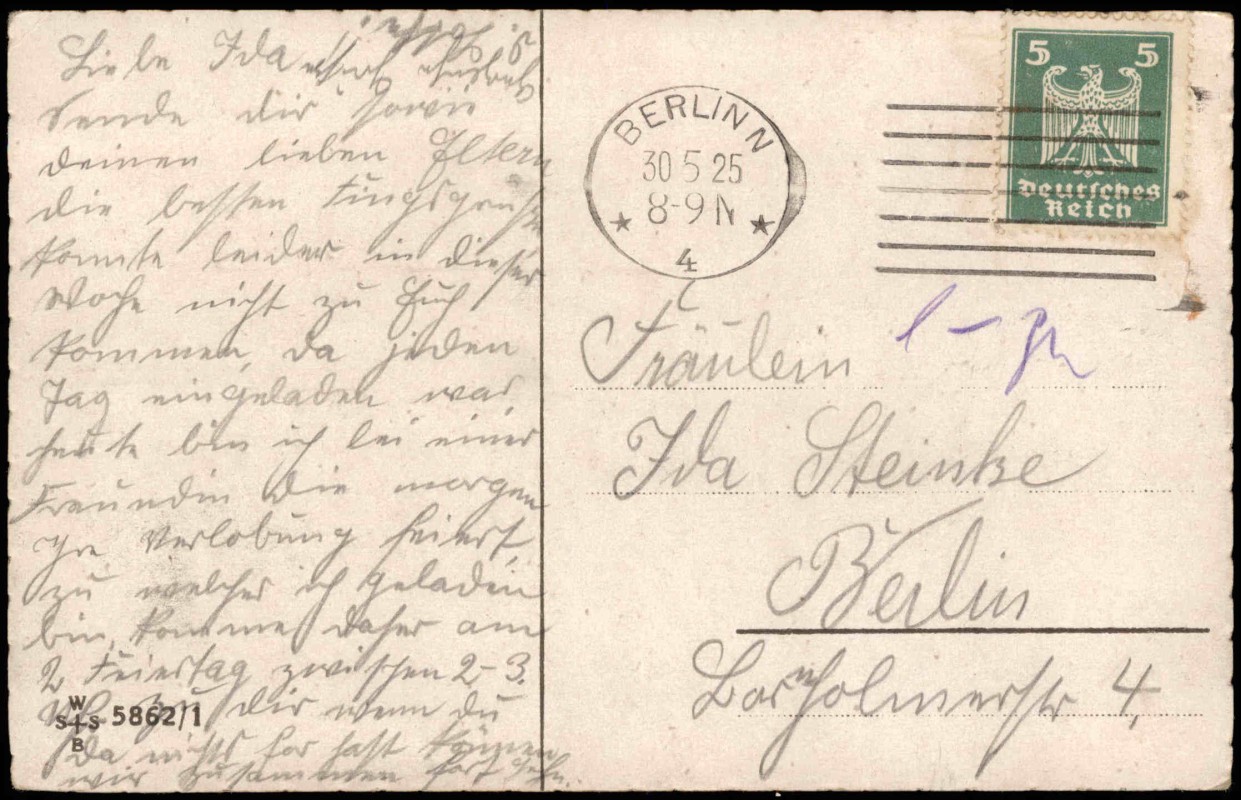 Liebe Ida
Sende dir sowie
deinen lieben Eltern
die besten Fingsgrüße
konnte leider in dieser
Woche nicht zu Euch
kommen, da jeden
Tag eingeladen war
heute bin ich bei einer
Freundin die morgen
ihre Verlobung feiert
zu welcher ich geladen
bin, komme daher am
2 Feiertag zwischen 2-3.
zu dir wenn du
da nichts vor hast können
wir zusammen fort gehn.
W
S+S 5862/1
B
BERLIN N
30 5 25
8-9 N
4
5 5
Deutsches
Reich
Fräulein
Ida Steinke
Berlin
Bornholmerstr 4,